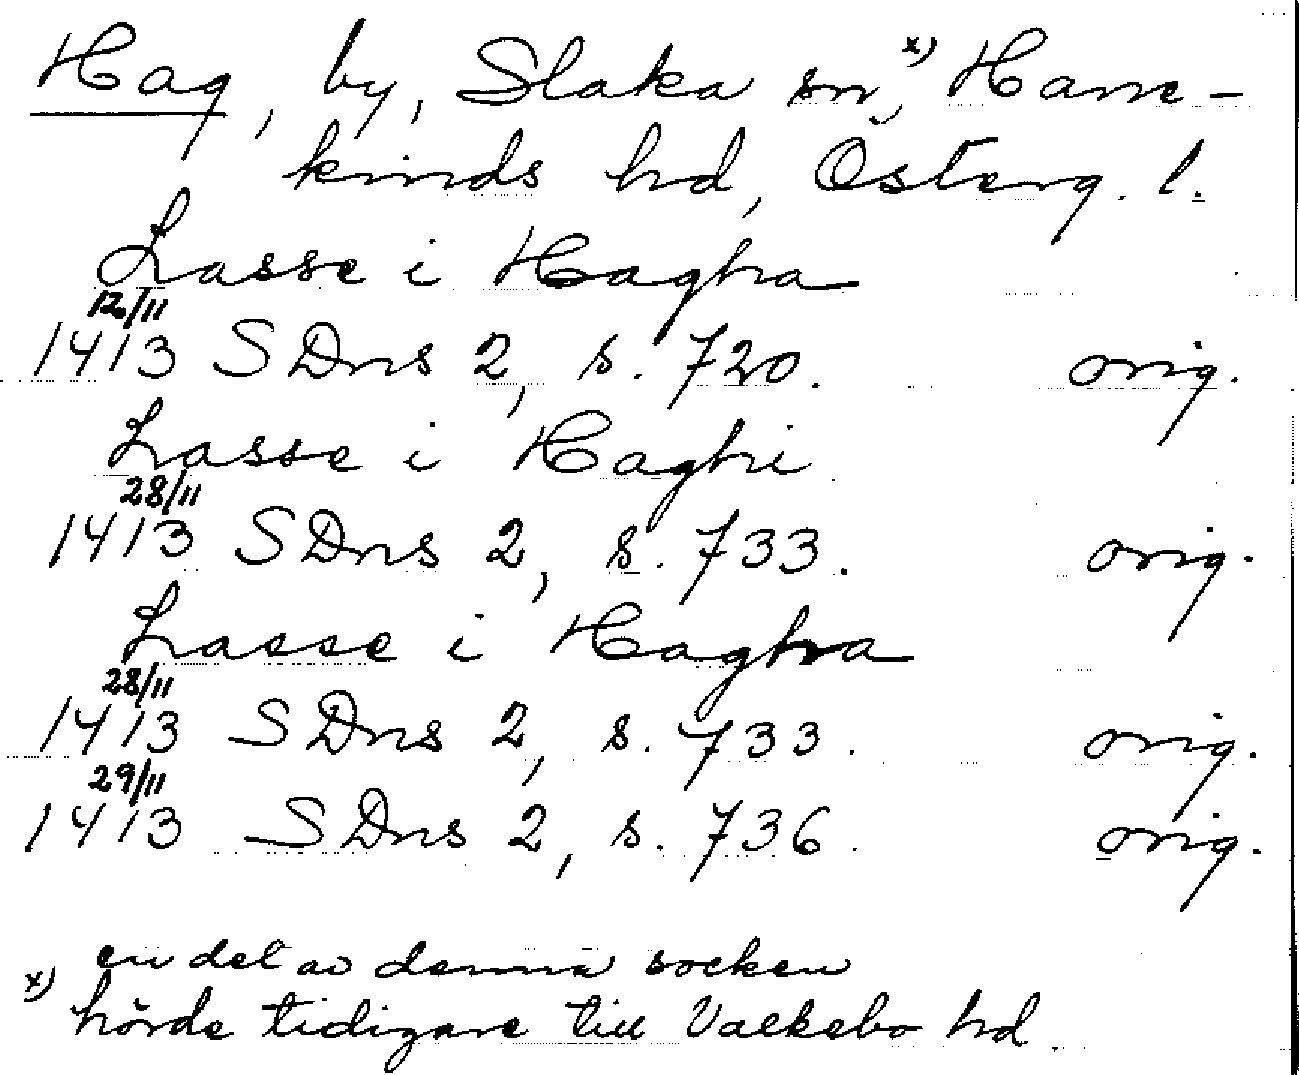 Hag, by, Slaka sn,x) Hane-
kinds hd, Österg. l.
Lasse i Haghra
12/11
1413 SDns 2, s. 720. orig.
Lasse i Haghi
28/11
1413 SDns 2, s. 733. orig.
Lasse i Haghra
28/11
1413 SDns 2, s. 733. orig.
29/11
1413 SDns 2, s. 736. orig.
en del av denna socken
x) hörde tidigare till Valkebo hd.